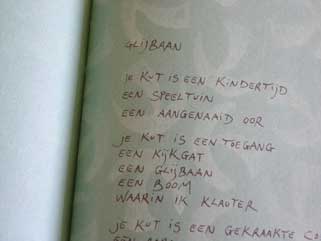 GLIJBAAN
JE KUT IS EEN KINDERTIJD
EEN SPEELTUIN
EEN AANGENAAID OOR
JE KUT IS EEN TOEGANG
EEN KIJKGAT
EEN GLIJBAAN
EEN BOOM
WAARIN IK KLAUTER
JE KUT IS EEN GEKRAAKTE